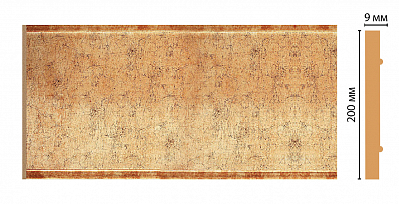 9 мм
200 мм